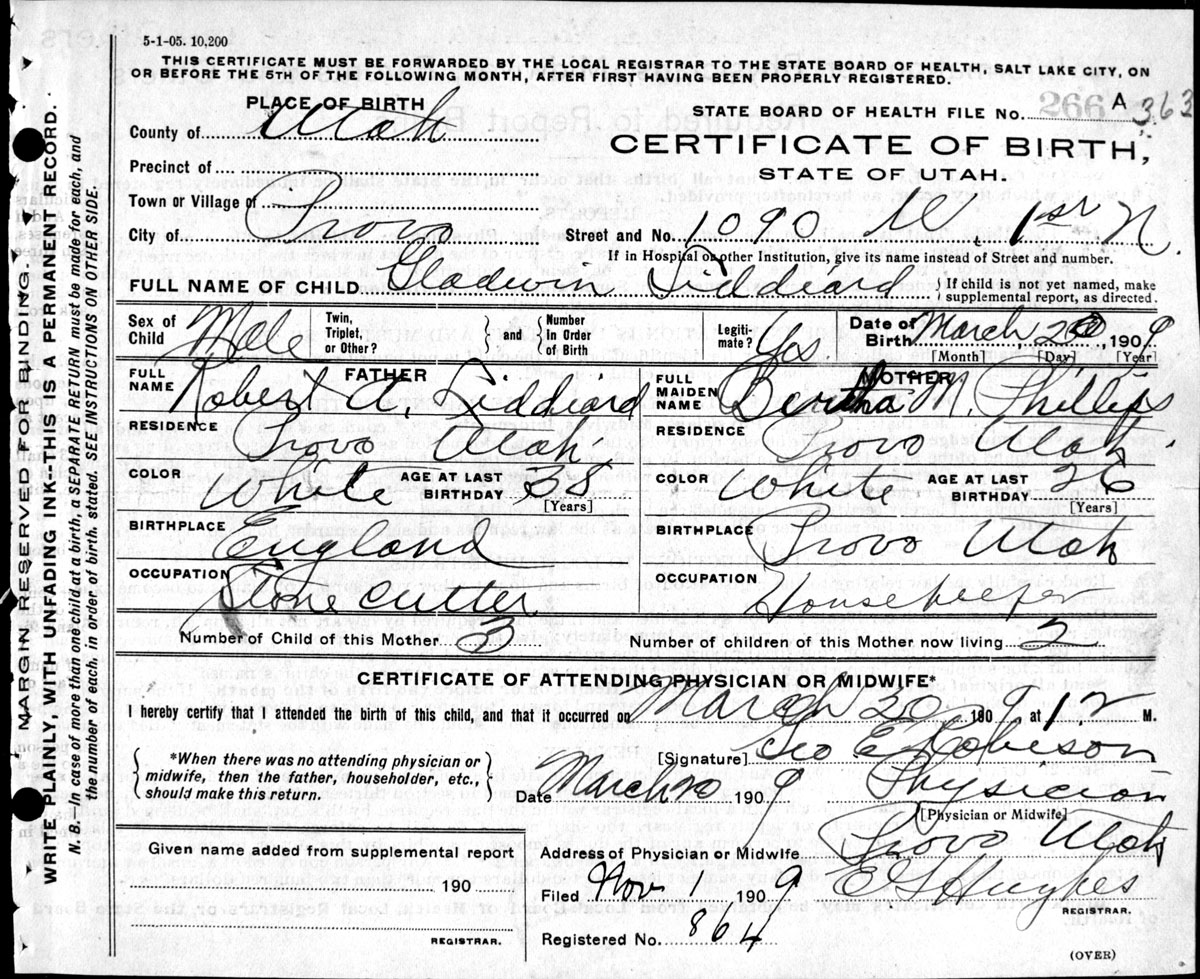 5-1-05. 10,200
THIS CERTIFICATE MUST BE FORWARDED BY THE LOCAL REGISTRAR TO THE STATE BOARD OF HEALTH, SALT LAKE CITY, ON
OR BEFORE THE 5TH OF THE FOLLOWING MONTH, AFTER FIRST HAVING BEEN PROPERLY REGISTERED.
PLACE OF BIRTH
STATE BOARD OF HEALTH FILE No. 266 A 363
County of Utah
CERTIFICATE OF BIRTH,
STATE OF UTAH.
Precinct of
Town or Village of
City of Provo Street and No. 1090 W. 1st N.
If in Hospital or other Institution, give its name instead of Street and number.
FULL NAME OF CHILD Gladwin Liddiard } If child is not yet named, make supplemental report, as directed.
Sex of Child Male Twin, Triplet, or Other? } and { Number in Order of Birth Legiti-mate? Yes. Date of Birth March, 20, 1909
[Month] [Day] [Year]
FATHER MOTHER
FULL NAME Robert A. Liddiard FULL MAIDEN NAME Bertha M. Phillips
RESIDENCE Provo Utah RESIDENCE Provo Utah
COLOR White AGE AT LAST BIRTHDAY 38 [Years] COLOR White AGE AT LAST BIRTHDAY 26 [Years]
BIRTHPLACE England BIRTHPLACE Provo Utah
OCCUPATION Stone Cutter OCCUPATION Housekeeper
Number of Child of this Mother 3 Number of children of this Mother now living 3
CERTIFICATE OF ATTENDING PHYSICIAN OR MIDWIFE*
I hereby certify that I attended the birth of this child, and that it occurred on March 20 1909 at 12 M.
{ *When there was no attending physician or midwife, then the father, householder, etc., should make this return. }
[Signature] Geo E Robison
Date March 20 1909 Physician
[Physician or Midwife]
Address of Physician or Midwife Provo Utah
Given name added from supplemental report
190
REGISTRAR.
Filed Nov 1 1909 E G Hughes
REGISTRAR.
Registered No. 864
(OVER)
MARGIN RESERVED FOR BINDING.
WRITE PLAINLY, WITH UNFADING INK--THIS IS A PERMANENT RECORD.
N. B.--In case of more than one child at a birth, a SEPARATE RETURN must be made for each, and
the number of each, in order of birth, stated. SEE INSTRUCTIONS ON OTHER SIDE.